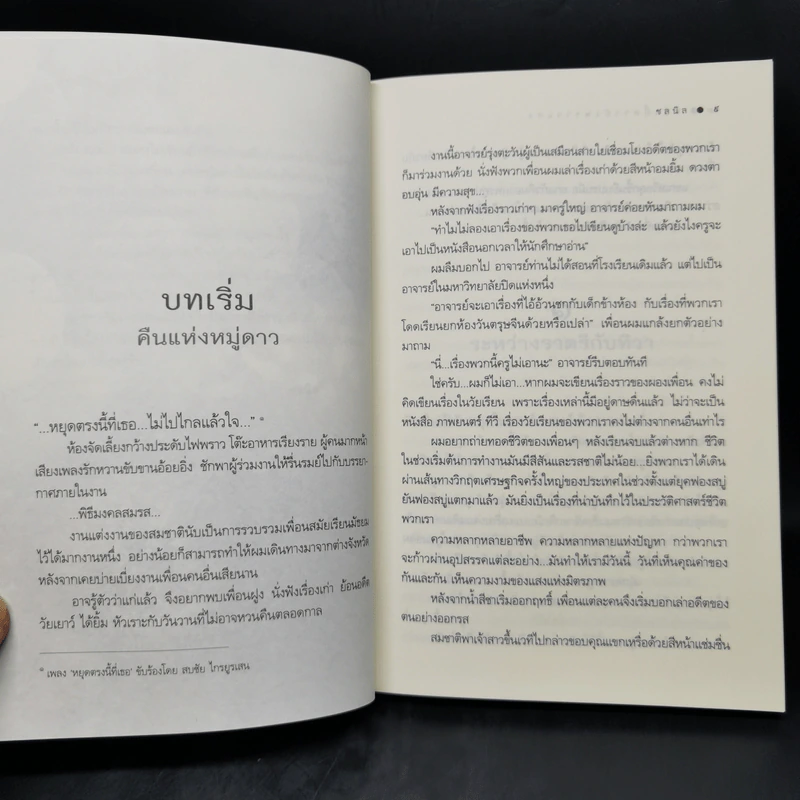 บทเริ่ม
คืนแห่งหมู่ดาว
"...หยุดตรงนี้ที่เธอ...ไม่ไปไกลแล้วใจ..." *
ห้องจัดเลี้ยงกว้างประดับไฟพราว โต๊ะอาหารเรียงราย ผู้คนมากหน้า
เสียงเพลงรักหวานขับขานอ้อยอิ่ง ชักพาผู้ร่วมงานให้รื่นรมย์ไปกับบรรยา-
กาศภายในงาน
...พิธีมงคลสมรส...
งานแต่งงานของสมชาตินับเป็นการรวบรวมเพื่อนสมัยเรียนมัธยม
ไว้ได้มากงานหนึ่ง อย่างน้อยก็สามารถทำให้ผมเดินทางมาจากต่างจังหวัด
หลังจากเคยบ่ายเบี่ยงงานเพื่อนคนอื่นเสียนาน
อาจรู้ตัวว่าแก่แล้ว จึงอยากพบเพื่อนฝูง นั่งฟังเรื่องเก่า ย้อนอดีต
วัยเยาว์ ได้ยิ้ม หัวเราะกับวันวานที่ไม่อาจหวนคืนตลอดกาล
* เพลง 'หยุดตรงนี้ที่เธอ' ขับร้องโดย สบชัย ไกรยูรเสน
ชลนิล ● ๕
งานนี้อาจารย์รุ่งตะวันผู้เป็นเสมือนสายใยเชื่อมโยงอดีตของพวกเรา
ก็มาร่วมงานด้วย นั่งฟังพวกเพื่อนผมเล่าเรื่องเก่าด้วยสีหน้าอมยิ้ม ดวงตา
อบอุ่น มีความสุข...
หลังจากฟังเรื่องราวเก่าๆ มาครู่ใหญ่ อาจารย์ค่อยหันมาถามผม
"ทำไมไม่ลองเอาเรื่องของพวกเธอไปเขียนดูบ้างล่ะ แล้วยังไงครูจะ
เอาไปเป็นหนังสือนอกเวลาให้นักศึกษาอ่าน"
ผมลืมบอกไป อาจารย์ท่านไม่ได้สอนที่โรงเรียนเดิมแล้ว แต่ไปเป็น
อาจารย์ในมหาวิทยาลัยปิดแห่งหนึ่ง
"อาจารย์จะเอาเรื่องที่ไอ้อ้วนชกกับเด็กข้างห้อง กับเรื่องที่พวกเรา
โดดเรียนยกห้องวันตรุษจีนด้วยหรือเปล่า" เพื่อนผมแกล้งยกตัวอย่าง
มาถาม
"นี่...เรื่องพวกนี้ครูไม่เอานะ" อาจารย์รีบตอบทันที
ใช่ครับ...ผมก็ไม่เอา...หากผมจะเขียนเรื่องราวของผองเพื่อน คงไม่
คิดเขียนเรื่องในวัยเรียน เพราะเรื่องเหล่านี้มีอยู่ดาษดื่นแล้ว ไม่ว่าจะเป็น
หนังสือ ภาพยนตร์ ทีวี เรื่องวัยเรียนของพวกเราคงไม่ต่างจากคนอื่นเท่าไร
ผมอยากถ่ายทอดชีวิตของเพื่อนๆ หลังเรียนจบแล้วต่างหาก ชีวิต
ในช่วงเริ่มต้นการทำงานมันมีสีสันและรสชาติไม่น้อย...ยิ่งพวกเราได้เดิน
ผ่านเส้นทางวิกฤตเศรษฐกิจครั้งใหญ่ของประเทศในช่วงตั้งแต่ยุคฟองสบู่
ยันฟองสบู่แตกมาแล้ว มันยิ่งเป็นเรื่องที่น่าบันทึกไว้ในประวัติศาสตร์ชีวิต
พวกเรา
ความหลากหลายอาชีพ ความหลากหลายแห่งปัญหา กว่าพวกเรา
จะก้าวผ่านอุปสรรคแต่ละอย่าง...มันทำให้เรามีวันนี้ วันที่เห็นคุณค่าของ
กันและกัน เห็นความงามของแสงแห่งมิตรภาพ
หลังจากน้ำสีชาเริ่มออกฤทธิ์ เพื่อนแต่ละคนจึงเริ่มบอกเล่าอดีตของ
ตนอย่างออกรส
สมชาติพาเจ้าสาวขึ้นเวทีไปกล่าวขอบคุณแขกเหรื่อด้วยสีหน้าแช่มชื่น